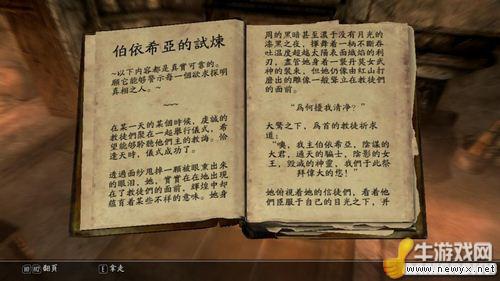 伯依希亞的試煉
~以下內容都是真實可靠的。
願它能够警示每一個欲求探明
真相之人。~
~~~
在某一天的某個時候，虔誠的
教徒們聚在一起舉行儀式，希
望能够聆聽他們主的教誨。恰
逢天時，儀式成功了。
透過面紗甩掉一顆被眼裏出來
的眼泪，她，實實在在地出現
在了教徒們的面前，輝煌中却
蘊育着某些不祥的意味。她身
周的黑暗甚至濃于没有月光的
漆黑之夜，揮舞着一柄不斷吞
吐温度超越太陽表面熾焰的利
刃，盡管她身着一襲丹莫女武
神的裝束，但她仍像由紅山打
磨出的雕像一般聳立在教徒們
的面前。
“爲何擾我清净？”
大驚之下，爲首的教徒祈求
道：
“噢，我主伯依希亞，陰謀的
大君，通天的騙士，陰影的女
王，毁滅的神靈，我們于此祭
拜偉大的您！”
她俯視着她的信徒們，看着他
們臣服于自己的目光之下，并
翻頁
E 拿走
牛游戏网
www.newyx.net